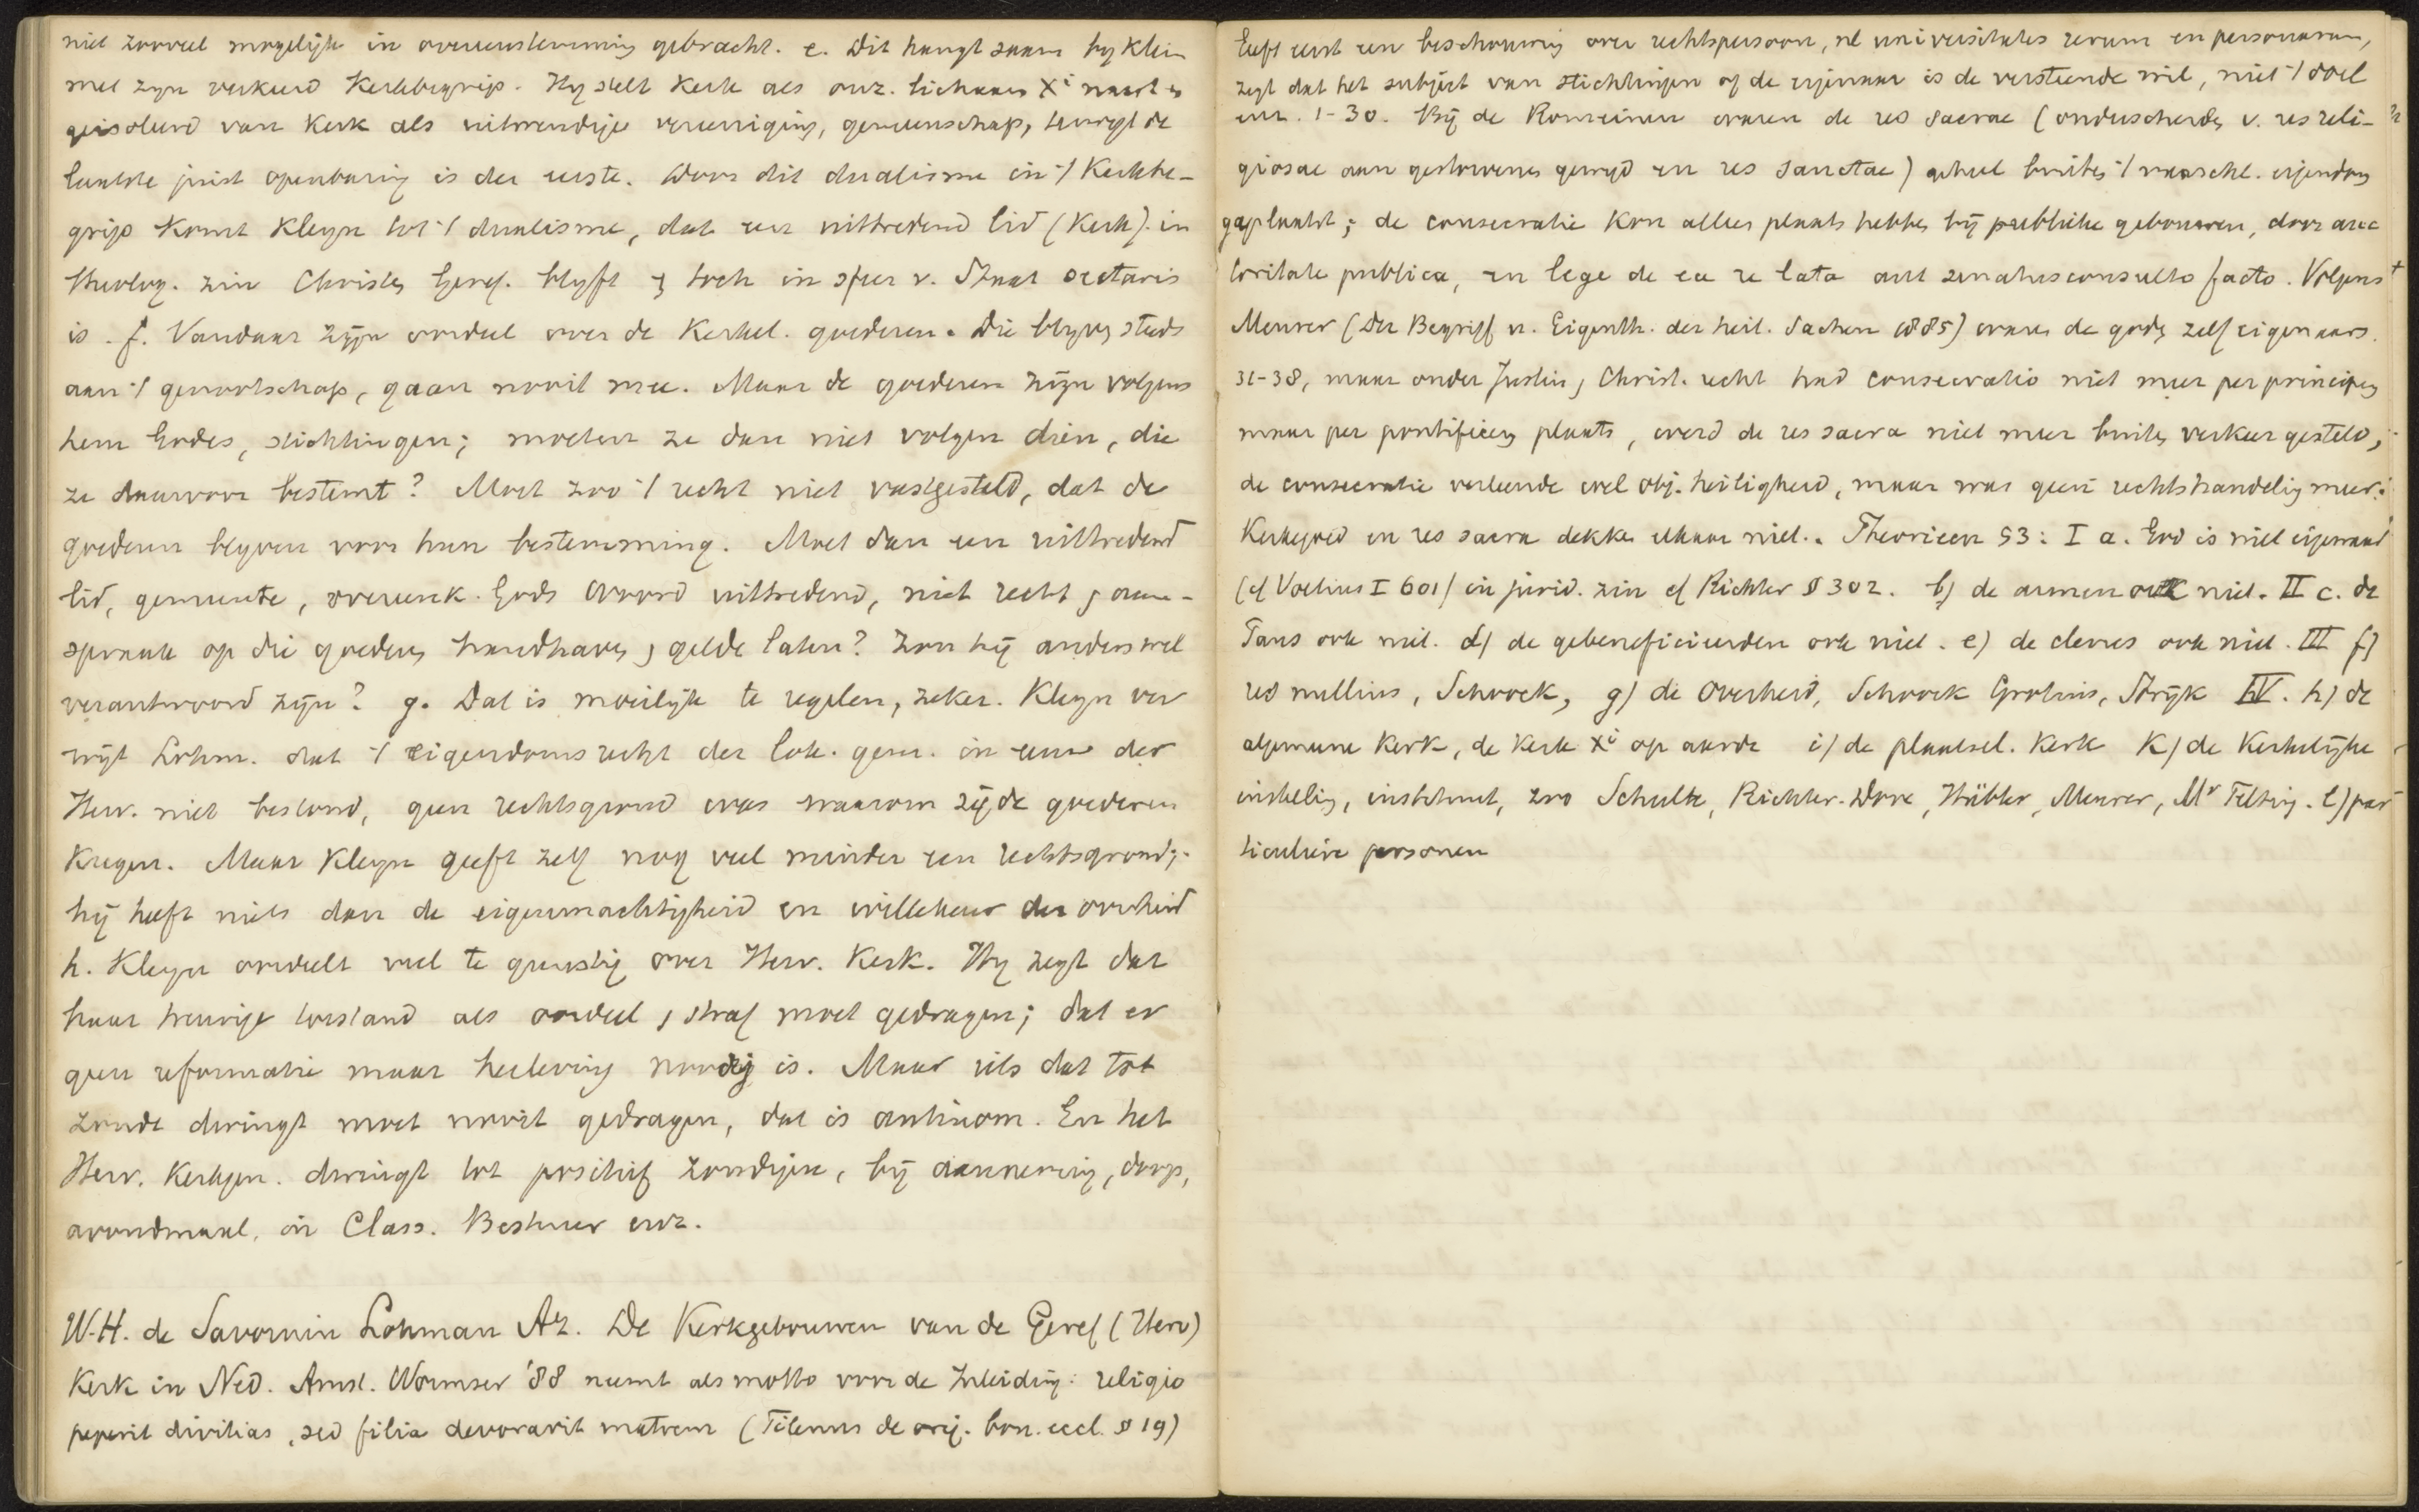 niet zooveel mogelijk in overeenstemming gebracht. e. Dit hangt saam by Kleijn
met zyn verkeerd Kerkbegrip. Hy stelt Kerk als onz. lichaam Xi naast en
geisoleerd van Kerk als uitwendige vereeniging, genootschap, terwyl de
laatste juist openbaring is der eerste. Door dit dualisme in 't Kerkbe-
grip komt Kleyn tot 't dualisme, dat een uittredend lid (Kerk) in
theolog. zin Christen Geref. blyft en toch in sfeer v. Staat sectaris
is. f. Vandaar zijn oordeel over de Kerkel. goederen. Die blyven steeds
aan 't genootschap, gaan nooit mee. Maar de goederen zijn volgens
hem Godes, stichtingen; moeten ze dan niet volgen dien, die
ze daarvoor bestemt? Moet zoo 't recht niet vastgesteld, dat de
goederen blyven voor hun bestemming. Moet dan een uittredend
lid, gemeente, overeenk. Gods Woord uittredend, niet recht en aan-
spraak op die goederen handhaven en gelde laten? Zou hij anders wel
verantwoord zijn? g. Dat is moeilijk te regelen, zeker. Kleyn ver
wijt Lohm. dat 't eigendomsrecht der lok. gem. in eene der
Herv. niet bestond, geen rechtsgrond was waarom zij de goederen
kregen. Maar Kleyn geeft zelf nog veel minder een rechtsgrond;
hij heeft niets dan de eigenmachtigheid en willekeur der overheid
h. Kleyn oordeelt veel te gunstig over Herv. Kerk. Hy zegt dat
haar treurige toestand als oordeel en straf moet gedragen; dat er
geen reformatie maar herleving noodig is. Maar iets dat tot
zonde dwingt moet nooit gedragen, dat is antinom. En het
Herv. Kerkgen. dwingt tot positief zondigen, bij aanneming, doop,
avondmaal, in Class. Bestuur enz.
W.H. de Savornin Lohman Az. De Kerkgebouwen van de Geref (Herv)
Kerk in Ned. Amst. Wormser '88 neemt als motto voor de Inleiding: religio
peperit divitias, sed filia devoravit matrem (Tilenus de orig. bon. eccl. § 19)
Geeft eerst een beschouwing over rechtspersoon, nl universitates rerum en personarum,
zegt dat het subject van stichtingen of de eigenaar is de versteende wil, niet 't doel
enz. 1-30. Bij de Romeinen waren de res sacrae (onderscheiden v. res reli-
giosae aan gestorvenen gewyd en res sanctae) geheel buiten 't maatsch. eigendom
geplaatst; de consecratie kon alleen plaats hebben bij publieke gebouwen, door auc
toritate publica, en lege de ea re lata aut senatusconsulto facto. Volgens
Meurer (Der Begriff u. Eigenth. der heil. Sachen 1885) waren de goden zelf eigenaars.
31-38, maar onder Justin, Christ. recht had consecratio niet meer per principes
maar per pontifices plaats, werd de res sacra niet meer buiten verkeer gesteld;
de consecratie verleende wel obj. heiligheid, maar was geen rechtshandeling meer.
Kerkgoed en res sacra dekken elkaar niet. Theorieen 53: I a. God is niet eigenaar
(cf Voetius I 601) in jurid. zin cf Richter § 302. b) de armen ook niet. II c. de
Paus ook niet. d) de gebeneficieerden ook niet. e) de clerus ook niet. III f)
res nullius, Schoock, g) de Overheid, Schoock Grotius, Strijk IV. h) de
algemeene Kerk, de Kerk Xi op aarde i) de plaatsel. Kerk K) de Kerkelijke
instelling, instituut, zoo Schulte, Richter-Dove, Hübler, Meurer, Mr Telting. l) par
ticuliere personen